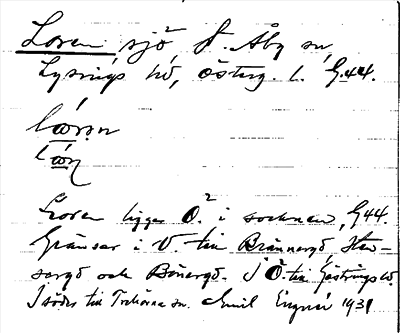 Loren sjö, S. Åby sn,
Lysings hd, Österg. l. G.44.
lóren
Loren ligger Ö. i socknen, G44.
Gränsar i V. till Brännergd, Sten-
sergd och Bönergd. I Ö. till Göstrings hd.
I söder till Trehörna sn. Emil Engnér 1931